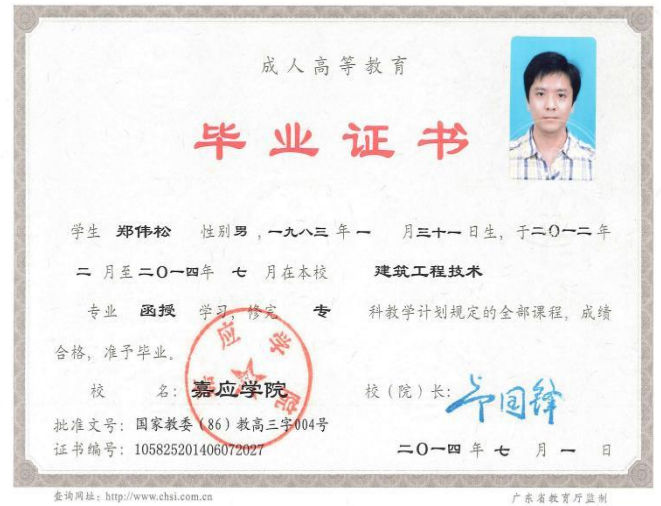 成人高等教育
毕业证书
学生 郑伟松 性别男，一九八三年一 月三十一日生，于二〇一二年
二月至二〇一四年 七 月在本校 建筑工程技术
专业 函授 学习，修完 专 科教学计划规定的全部课程，成绩
合格，准予毕业。
校 名：嘉应学院 校（院）长：
批准文号：国家教委（86）教高三字004号
证书编号：105825201406072027 二〇一四年七 月 一 日
查询网址：http://www.chsi.com.cn 广东省教育厅监制